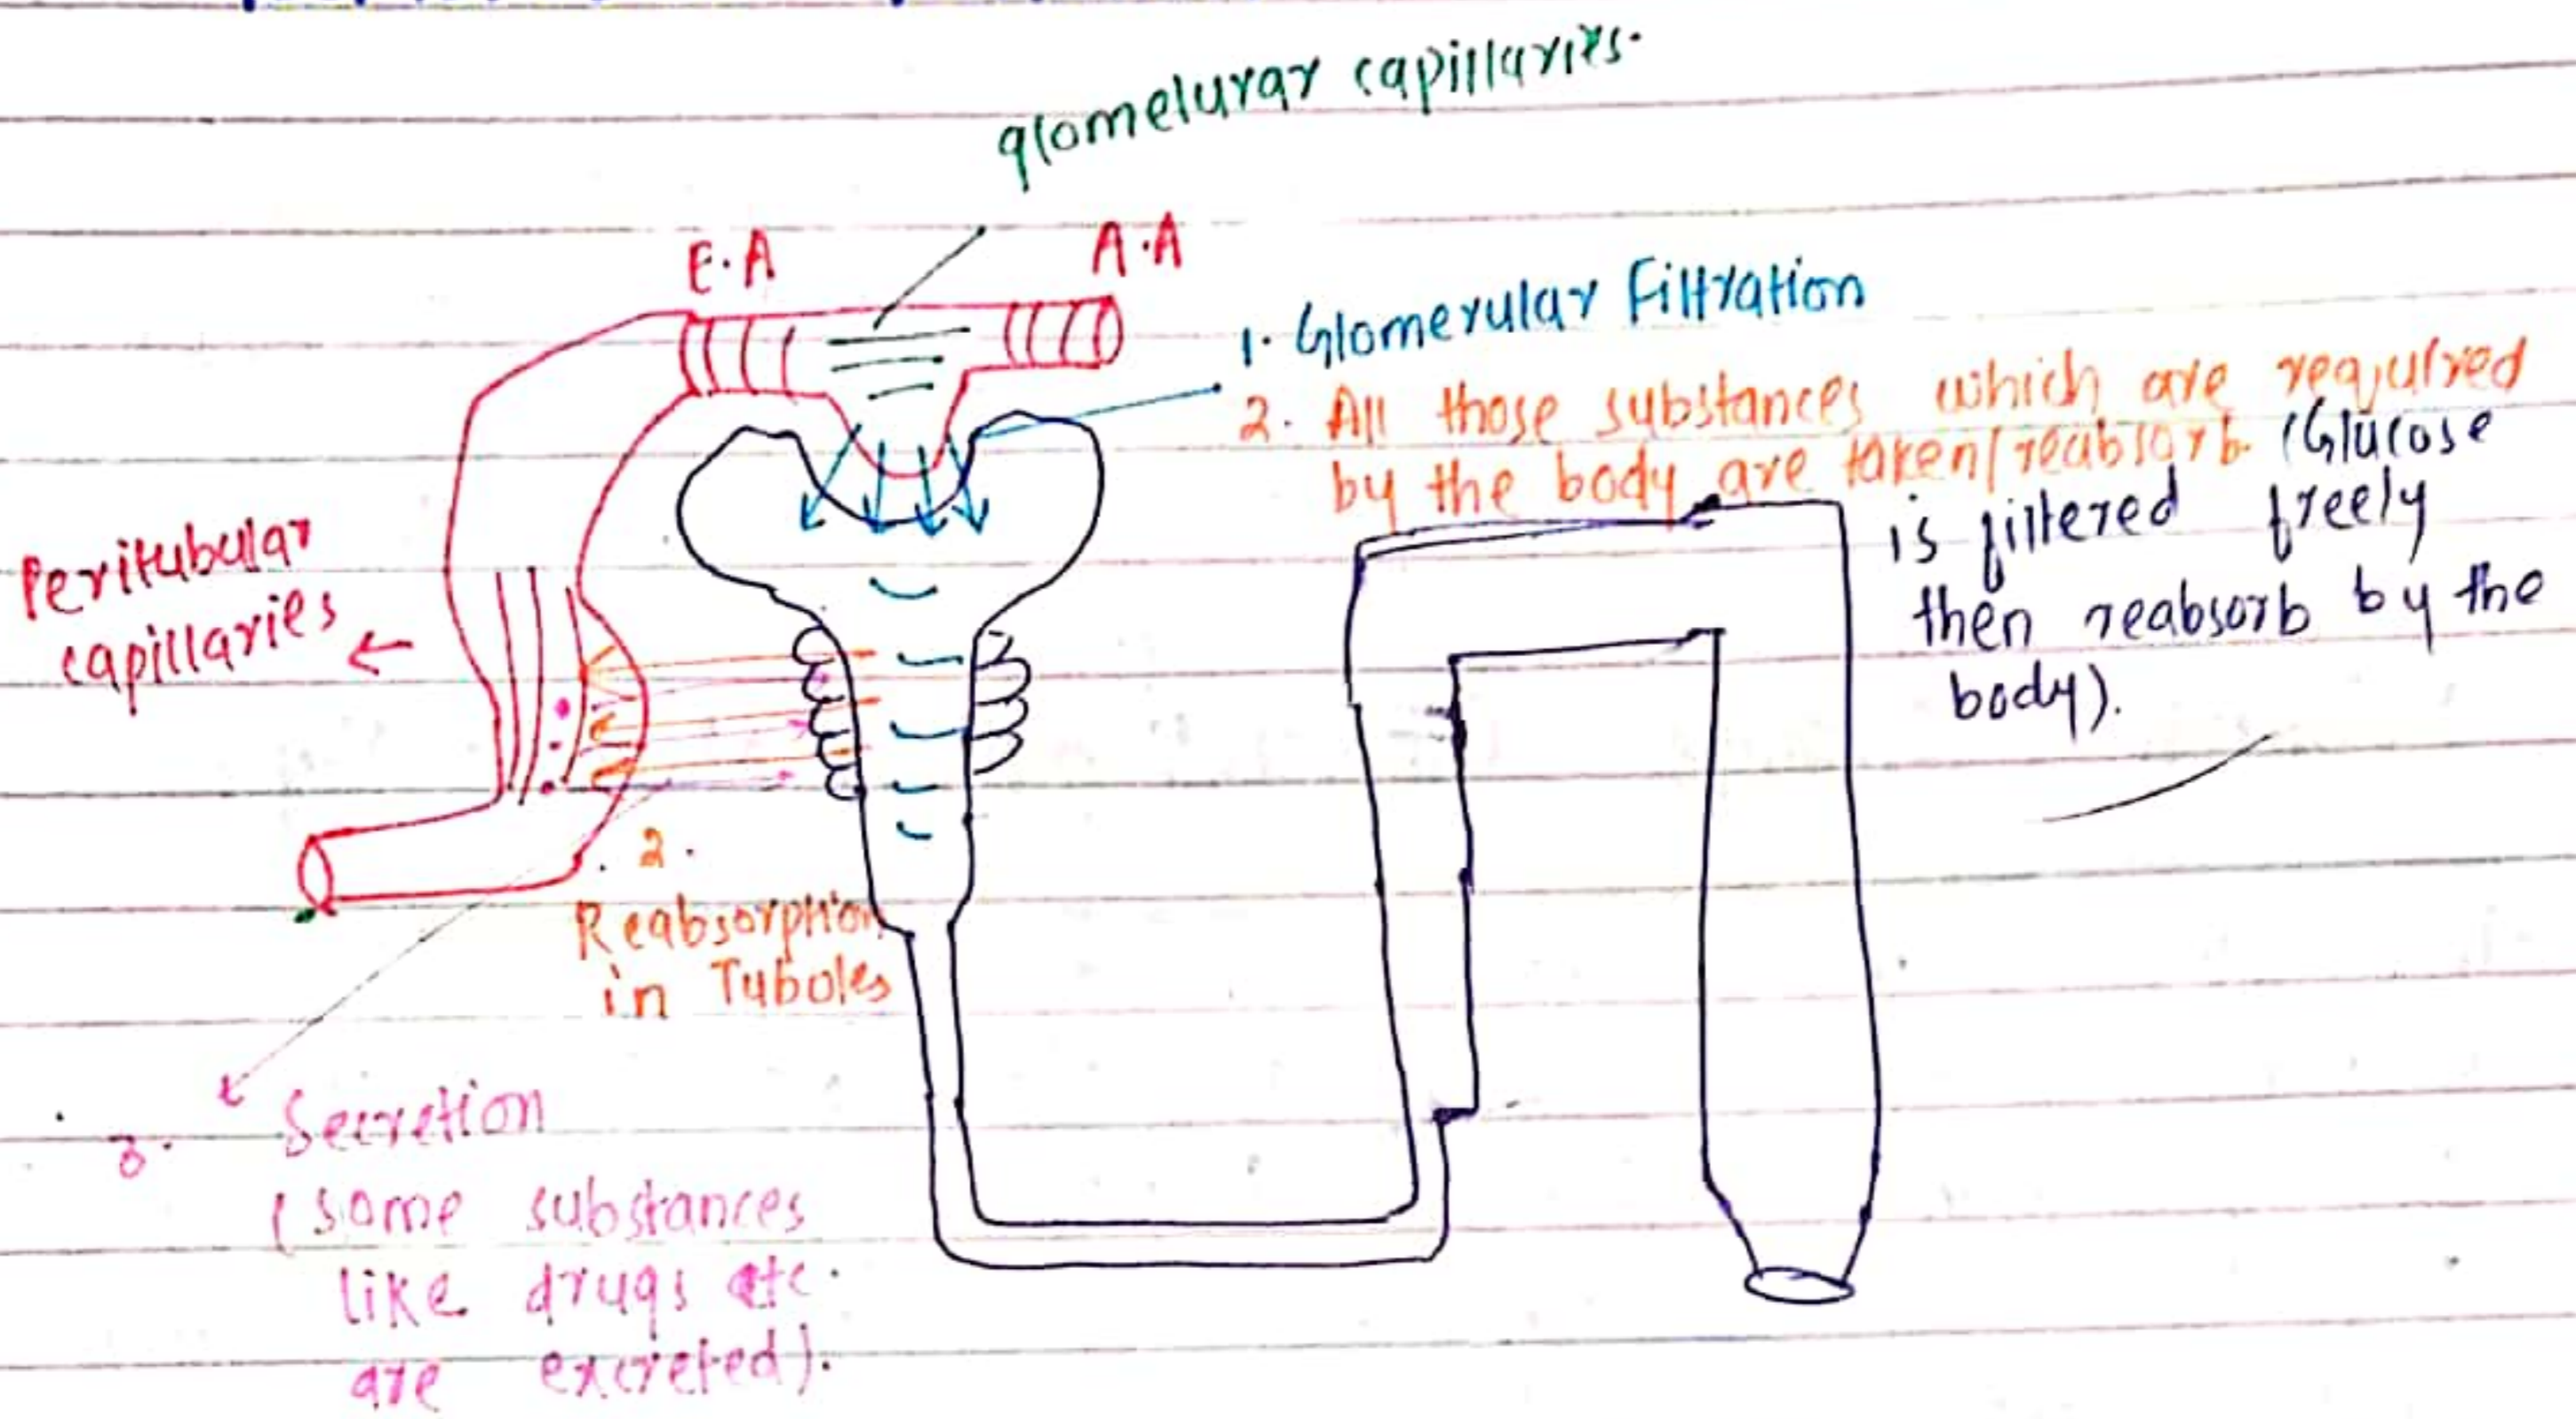 glomelurar capillaries.
E.A
A.A
1. Glomerular Filtration
2. All those substances which are required
by the body are taken/reabsorb. (Glucose
is filtered freely
then reabsorb by the
body).
Peritubular
capillaries
2.
Reabsorption
in Tuboles
3. Secretion
(some substances
like drugs etc.
are excreted).